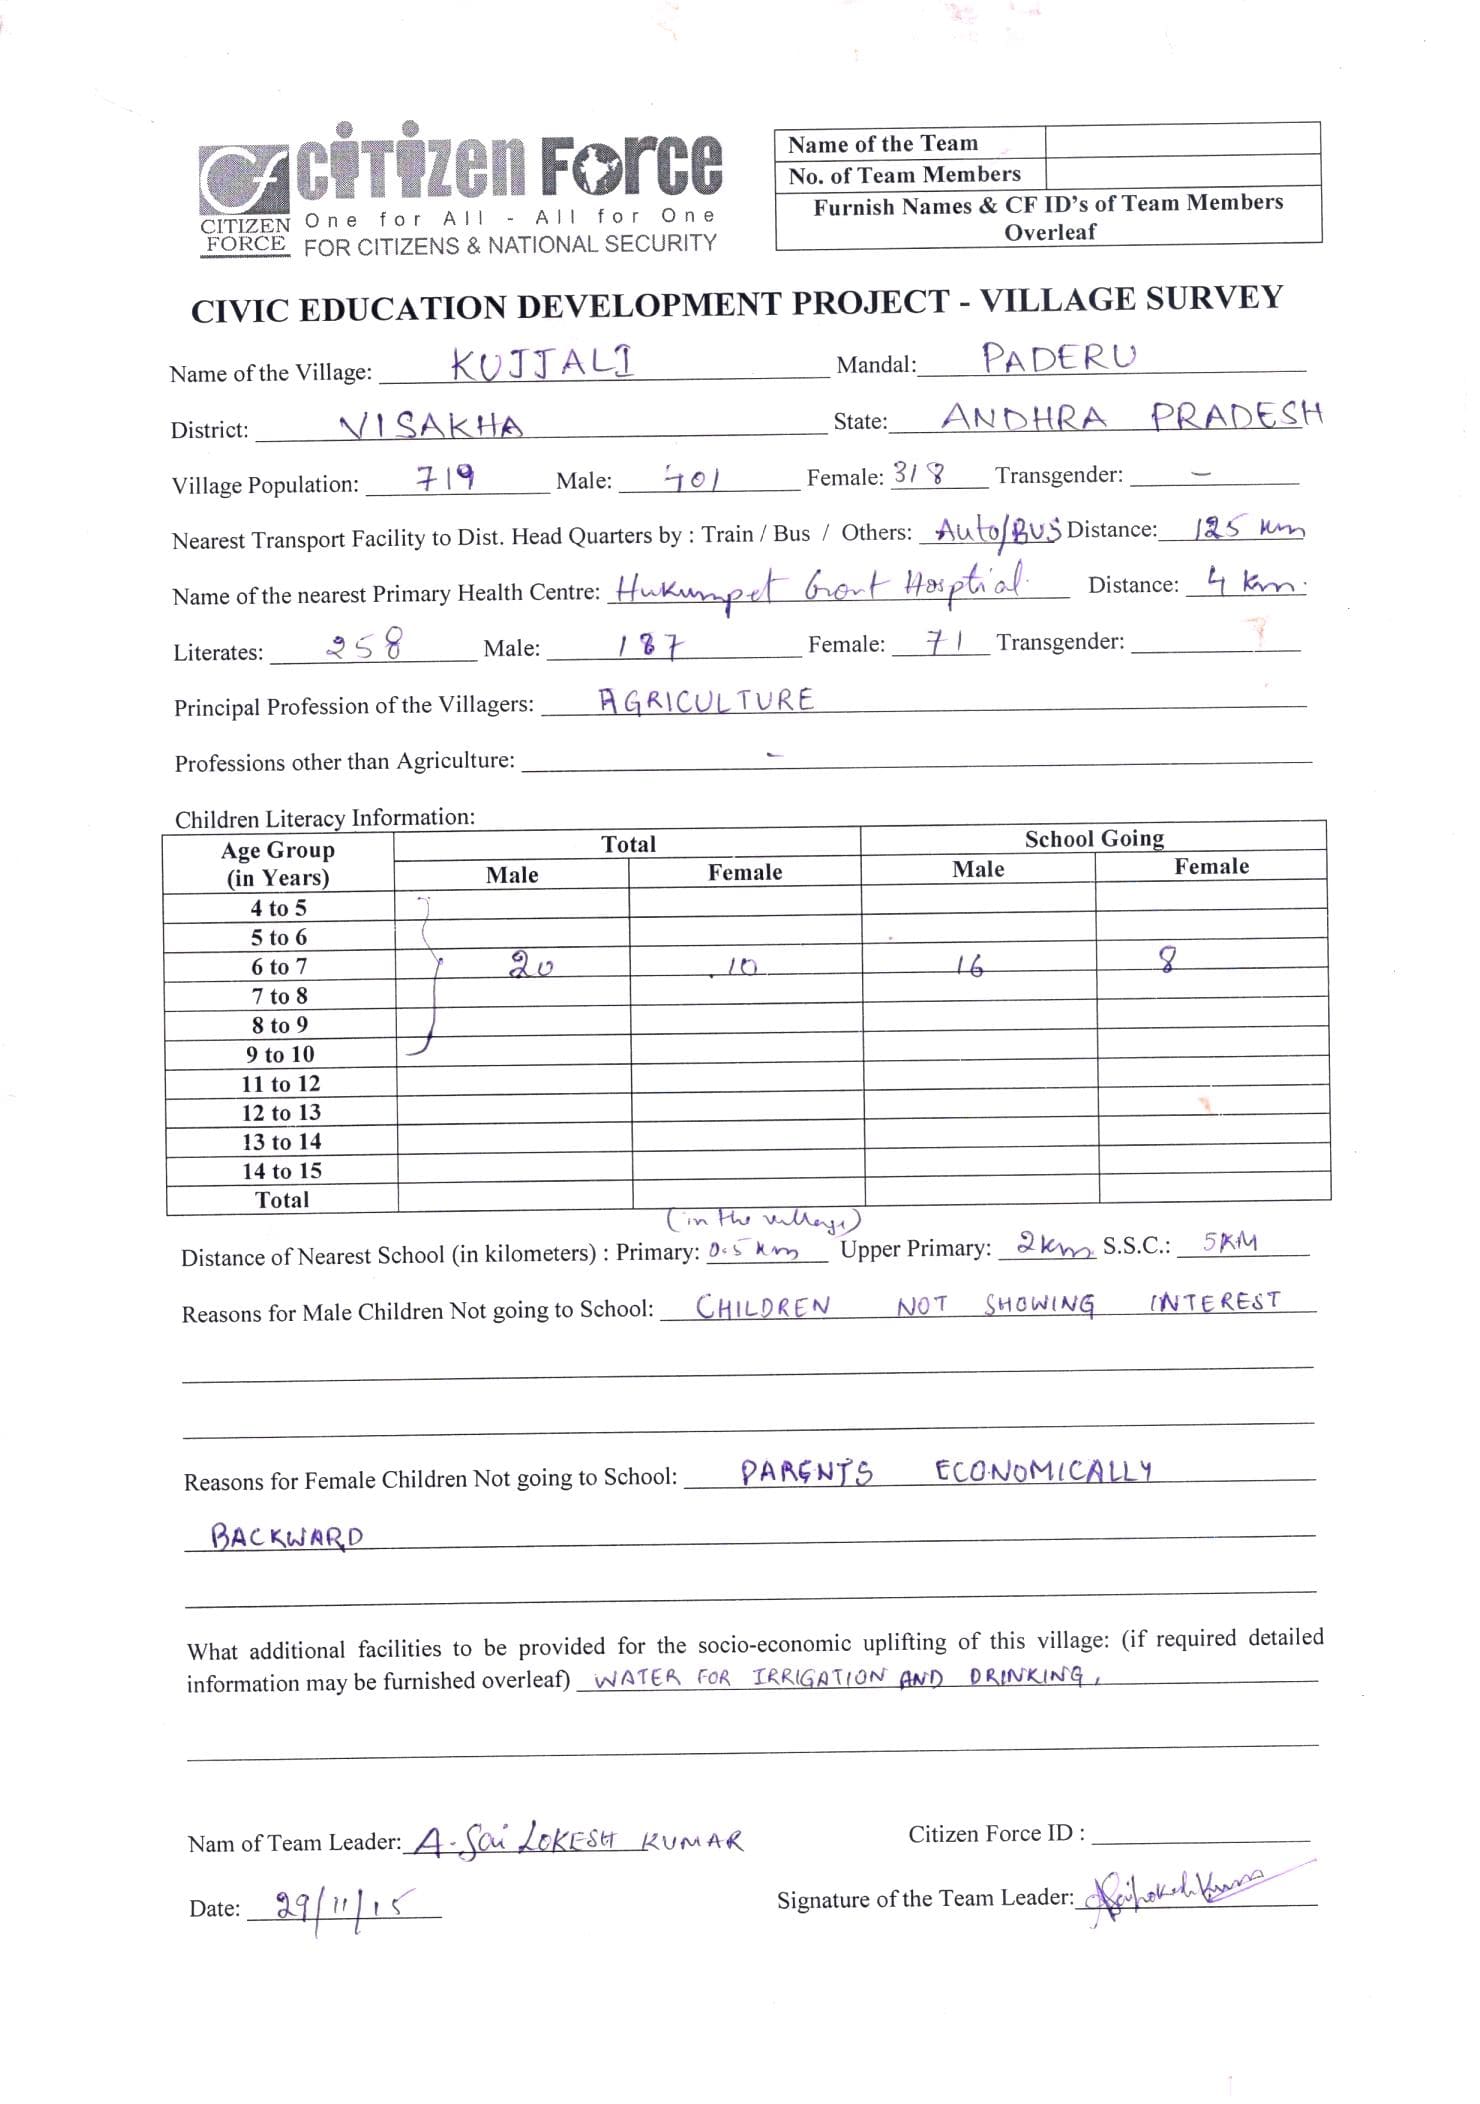 Cf CITIZEN FORCE
CITIZEN One for All - All for One
FORCE FOR CITIZENS & NATIONAL SECURITY
Name of the Team
No. of Team Members
Furnish Names & CF ID's of Team Members
Overleaf
CIVIC EDUCATION DEVELOPMENT PROJECT - VILLAGE SURVEY
Name of the Village: KUJJALI Mandal: PADERU
District: VISAKHA State: ANDHRA PRADESH
Village Population: 719 Male: 401 Female: 318 Transgender: –
Nearest Transport Facility to Dist. Head Quarters by : Train / Bus / Others: Auto/BUS Distance: 125 km
Name of the nearest Primary Health Centre: Hukumpet Govt Hosptial Distance: 4 km.
Literates: 258 Male: 187 Female: 71 Transgender:
Principal Profession of the Villagers: AGRICULTURE
Professions other than Agriculture: -
Children Literacy Information:
Age Group Total School Going
(in Years) Male Female Male Female
4 to 5
5 to 6
6 to 7 20 10 16 8
7 to 8
8 to 9
9 to 10
11 to 12
12 to 13
13 to 14
14 to 15
Total
(in the village)
Distance of Nearest School (in kilometers) : Primary: 0.5 km Upper Primary: 2 km S.S.C.: 5KM
Reasons for Male Children Not going to School: CHILDREN NOT SHOWING INTEREST
Reasons for Female Children Not going to School: PARENTS ECONOMICALLY
BACKWARD
What additional facilities to be provided for the socio-economic uplifting of this village: (if required detailed
information may be furnished overleaf) WATER FOR IRRIGATION AND DRINKING,
Nam of Team Leader: A. Sai LOKESH KUMAR Citizen Force ID :
Date: 29/11/15 Signature of the Team Leader: ASaiLokesh Kumar